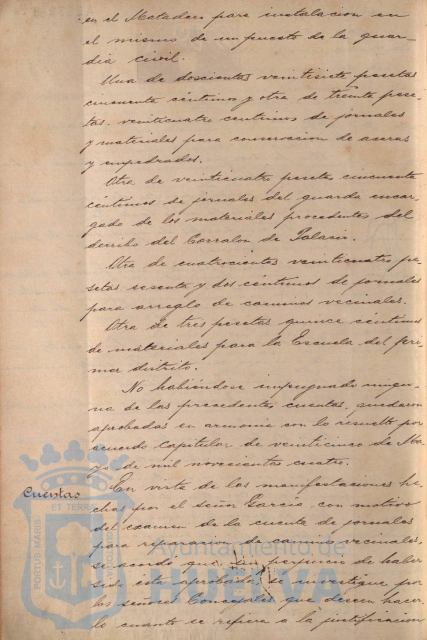 en el Matadero para instalacion en
el mismo de un puesto de la guar-
dia civil.
Una de doscientas veintisiete pesetas
cincuenta céntimos y otra de treinta pese-
tas veinticuatro centimos de jornales
y materiales para conservacion de aceras
y empedrados.
Otra de veinticuatro pesetas cincuenta
céntimos de jornales del guarda encar-
gado de los materiales procedentes del
derribo del Corralon de
Otra de cuatrocientas veinticuatro pe-
setas sesenta y dos céntimos de jornales
para arreglo de caminos vecinales.
Otra de tres pesetas quince céntimos
de materiales para la Escuela del pri-
mer distrito.
No habiéndose impugnado ningu-
na de las precedentes cuentas, quedaron
aprobadas en armonia con lo resuelto por
acuerdo capitular de veinticinco de Ma-
yo de mil novecientos cuatro.
Cuentas
En vista de las manifestaciones he-
chas por el señor Garcia con motivo
del examen de la cuenta de jornales
para reparacion de caminos vecinales,
se acordó que, sin perjuicio de haber
sido ésta aprobada, se investigue por
los señores Concejales que deseen hacer-
lo cuanto se refiera a la justificacion
PORTUS MARIS
ET TERRÆ
Ayuntamiento de
HUELVA